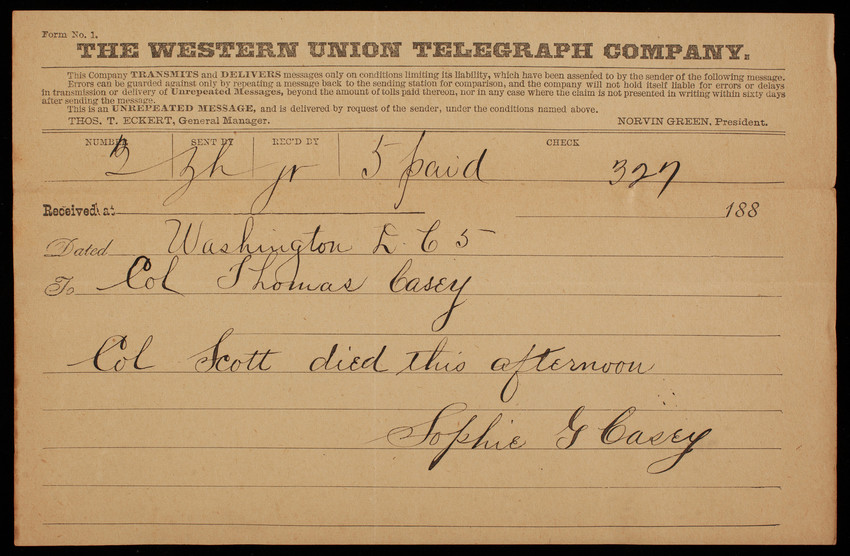 Form No. 1.
THE WESTERN UNION TELEGRAPH COMPANY.
This Company TRANSMITS and DELIVERS messages only on conditions limiting its liability, which have been assented to by the sender of the following message.
Errors can be guarded against only by repeating a message back to the sending station for comparison, and the company will not hold itself liable for errors or delays
in transmission or delivery of Unrepeated Messages, beyond the amount of tolls paid thereon, nor in any case where the claim is not presented in writing within sixty days
after sending the message.
This is an UNREPEATED MESSAGE, and is delivered by request of the sender, under the conditions named above.
THOS. T. ECKERT, General Manager. NORVIN GREEN, President.
NUMBER SENT BY REC'D BY CHECK
jr 5 paid 327
Received at 188
Dated Washington D. C 5
To Col Thomas Casey
Col Scott died this afternoon
Sophie G Casey